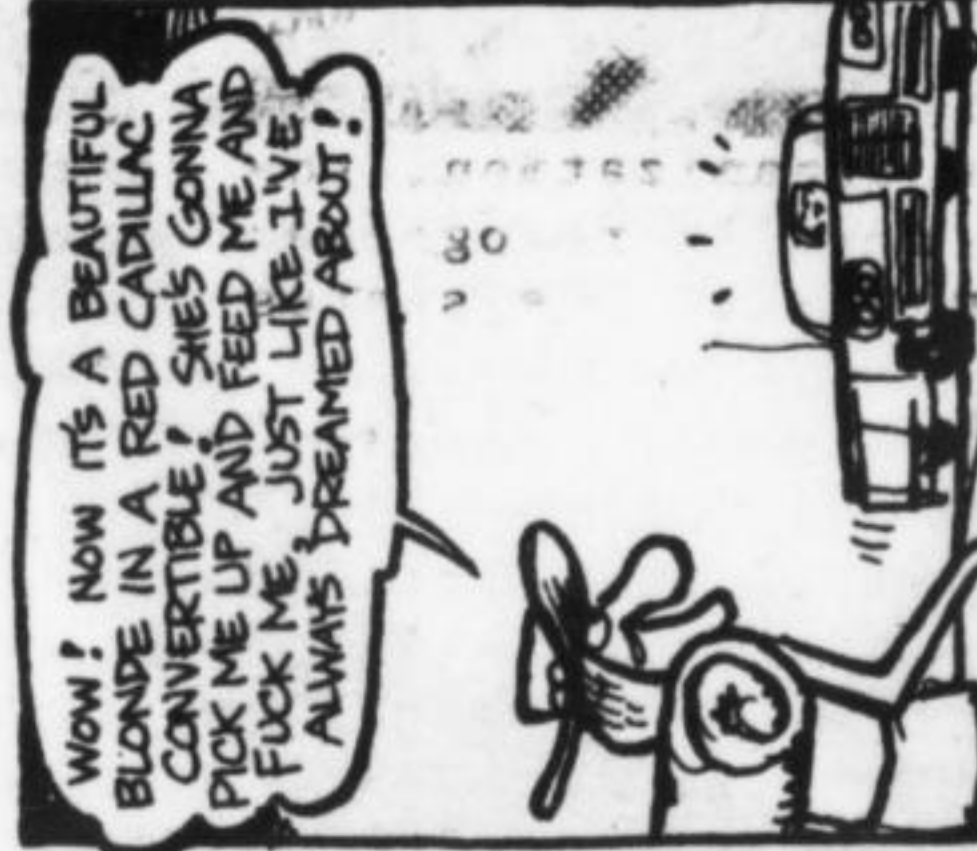 WOW! NOW IT'S A BEAUTIFUL
BLONDE IN A RED CADILLAC
CONVERTIBLE! SHE'S GONNA
PICK ME UP AND FEED ME AND
FUCK ME, JUST LIKE I'VE
ALWAYS DREAMED ABOUT!